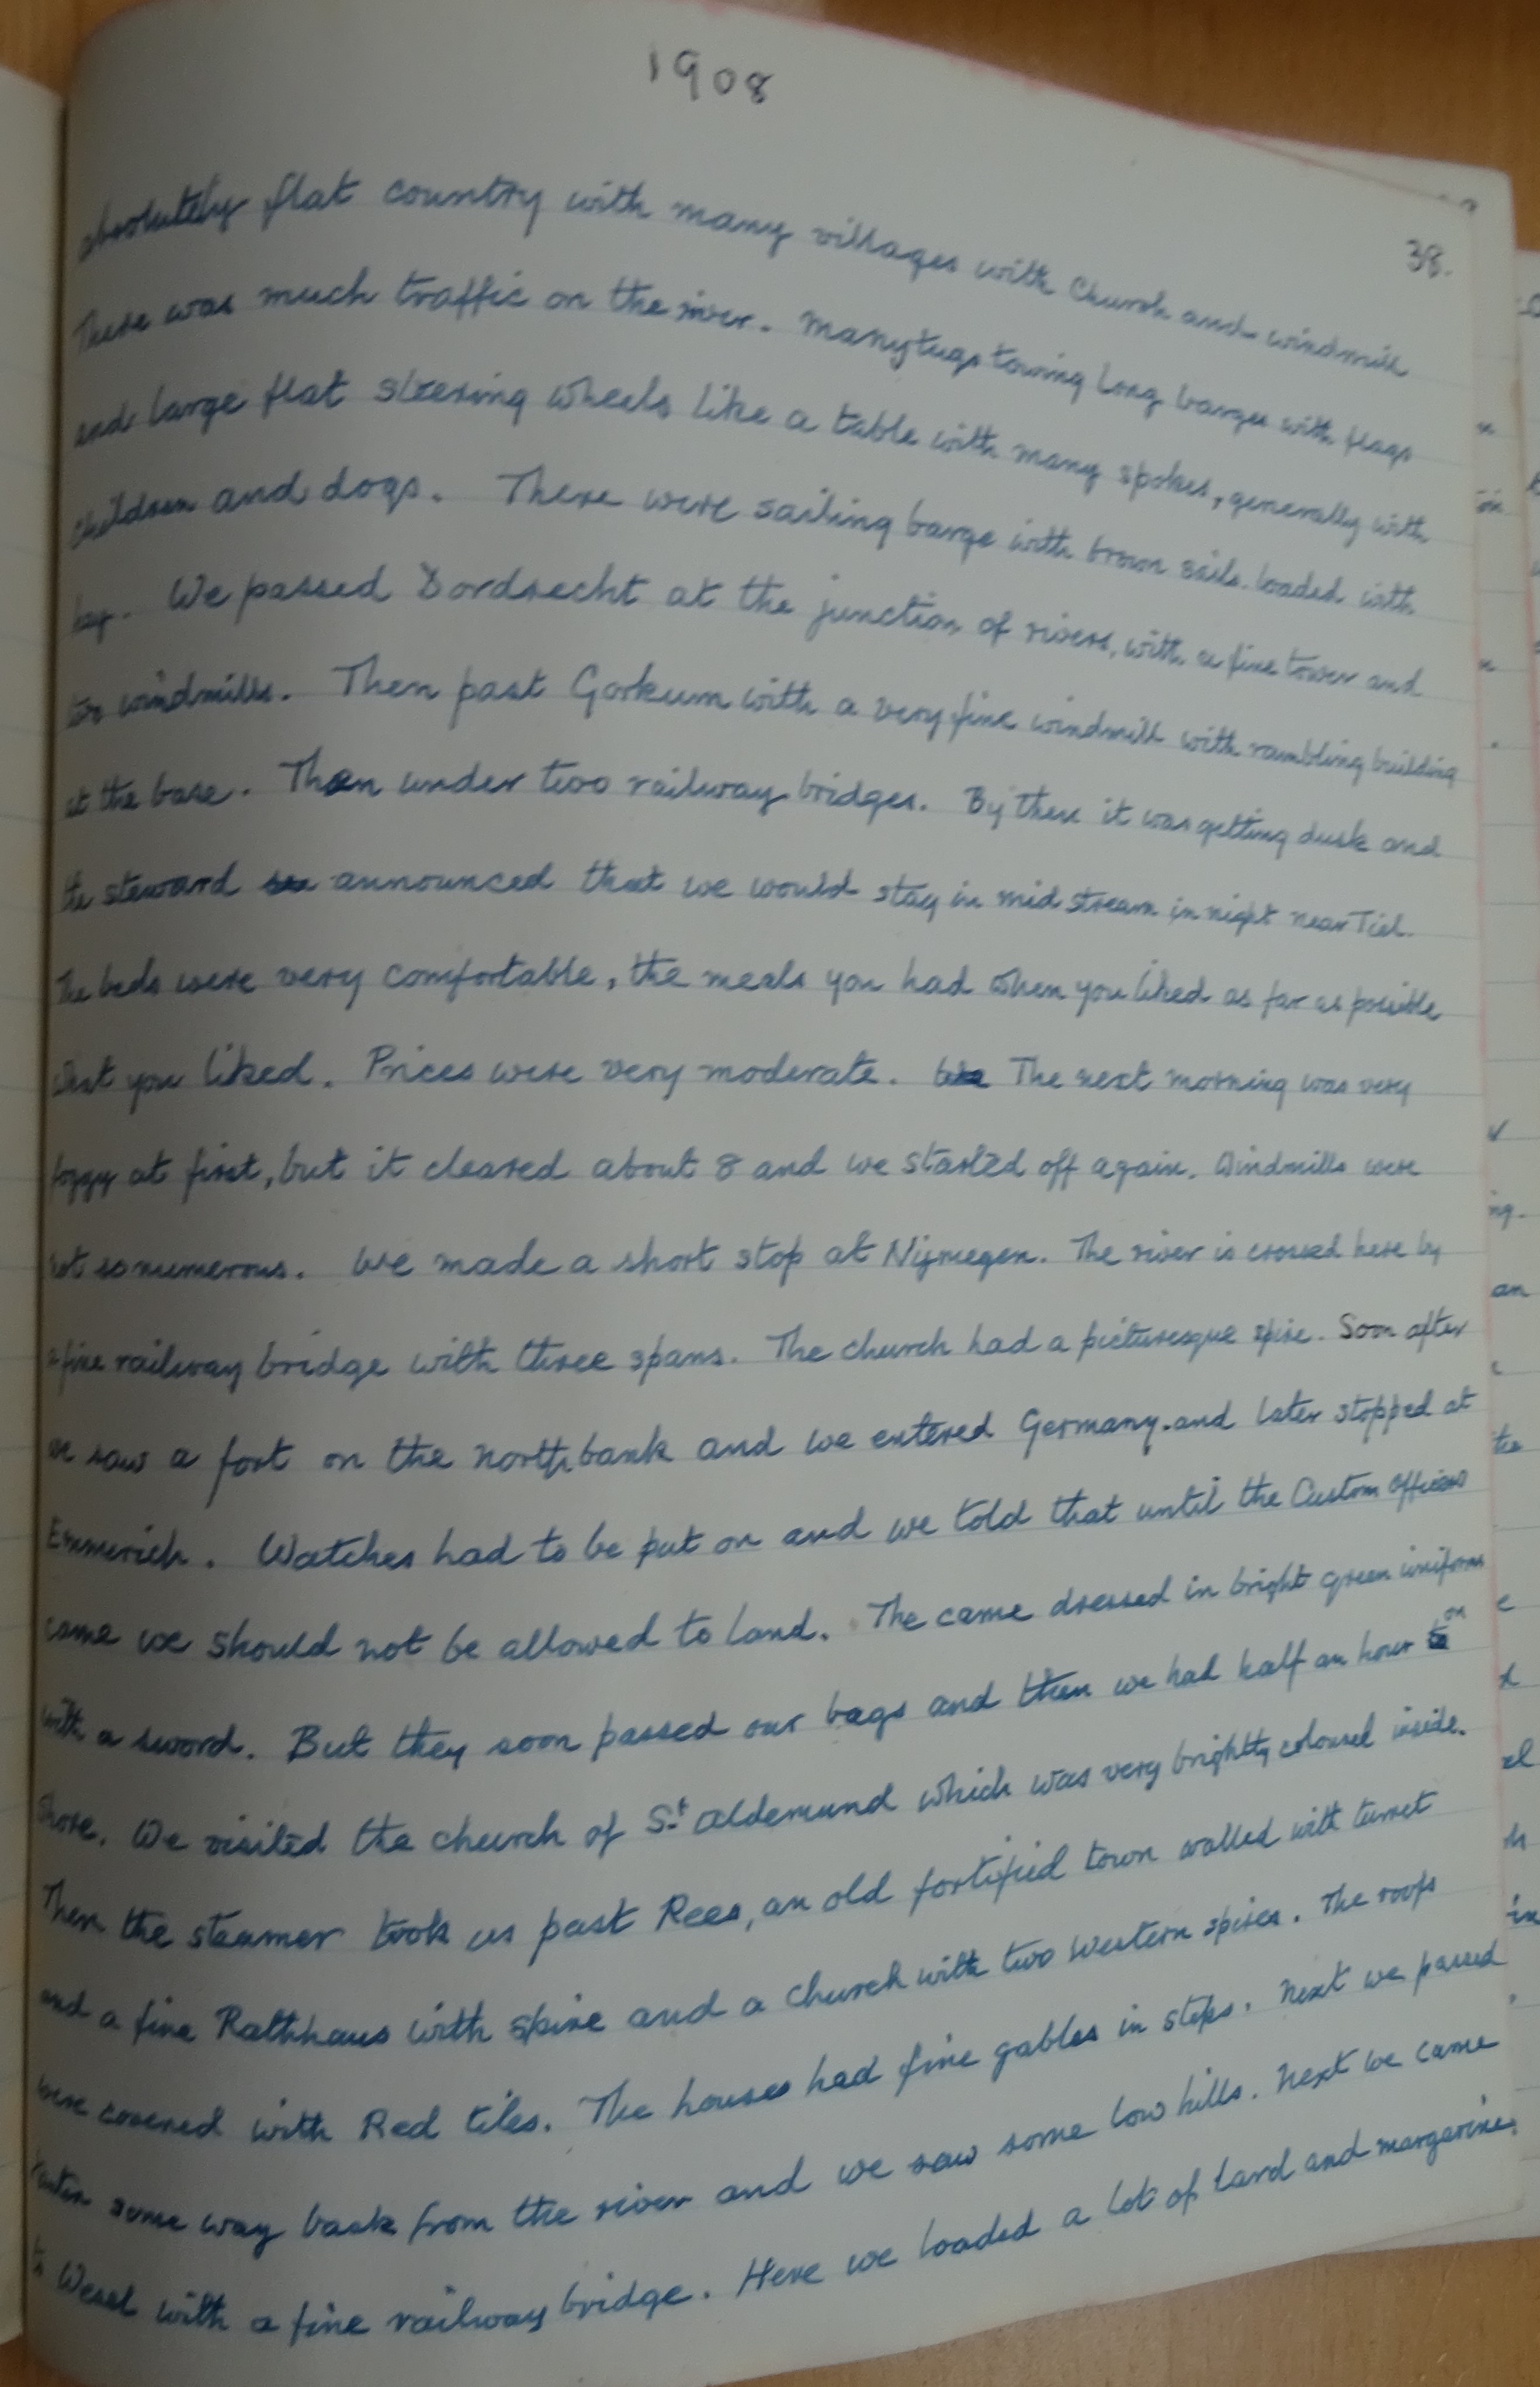 1908
38.
absolutely flat country with many villages with Church and windmill
There was much traffic on the river. Many tugs towing long barges with flags
and large flat steering wheels like a table with many spokes, generally with
children and dogs. There were sailing barge with brown sails loaded with
hay. We passed Dordrecht at the junction of rivers, with a fine tower and
two windmills. Then past Gorkum with a very fine windmill with rambling building
at the base. Then under two railway bridges. By then it was getting dusk and
the steward announced that we would stay in mid stream in night near Tiel.
The beds were very comfortable, the meals you had when you liked as far as possible
what you liked. Prices were very moderate. The next morning was very
foggy at first, but it cleared about 8 and we started off again. Windmills were
not so numerous. We made a short stop at Nijmegen. The river is crossed here by
a fine railway bridge with three spans. The church had a picturesque spire. Soon after
we saw a fort on the north bank and we entered Germany. and later stopped at
Emmerich. Watches had to be put on and we told that until the Custom officers
came we should not be allowed to land. The came dressed in bright green uniforms
with a sword. But they soon passed our bags and then we had half an hour on
shore. We visited the church of St Aldemund which was very brightly coloured inside.
Then the steamer took us past Rees, an old fortified town walled with turret
and a fine Rathhaus with spire and a church with two Western spires. The roofs
were covered with Red tiles. The houses had fine gables in steps. Next we passed
some way back from the river and we saw some low hills. Next we came
to Wesel with a fine railway bridge. Here we loaded a lot of lard and margarine.